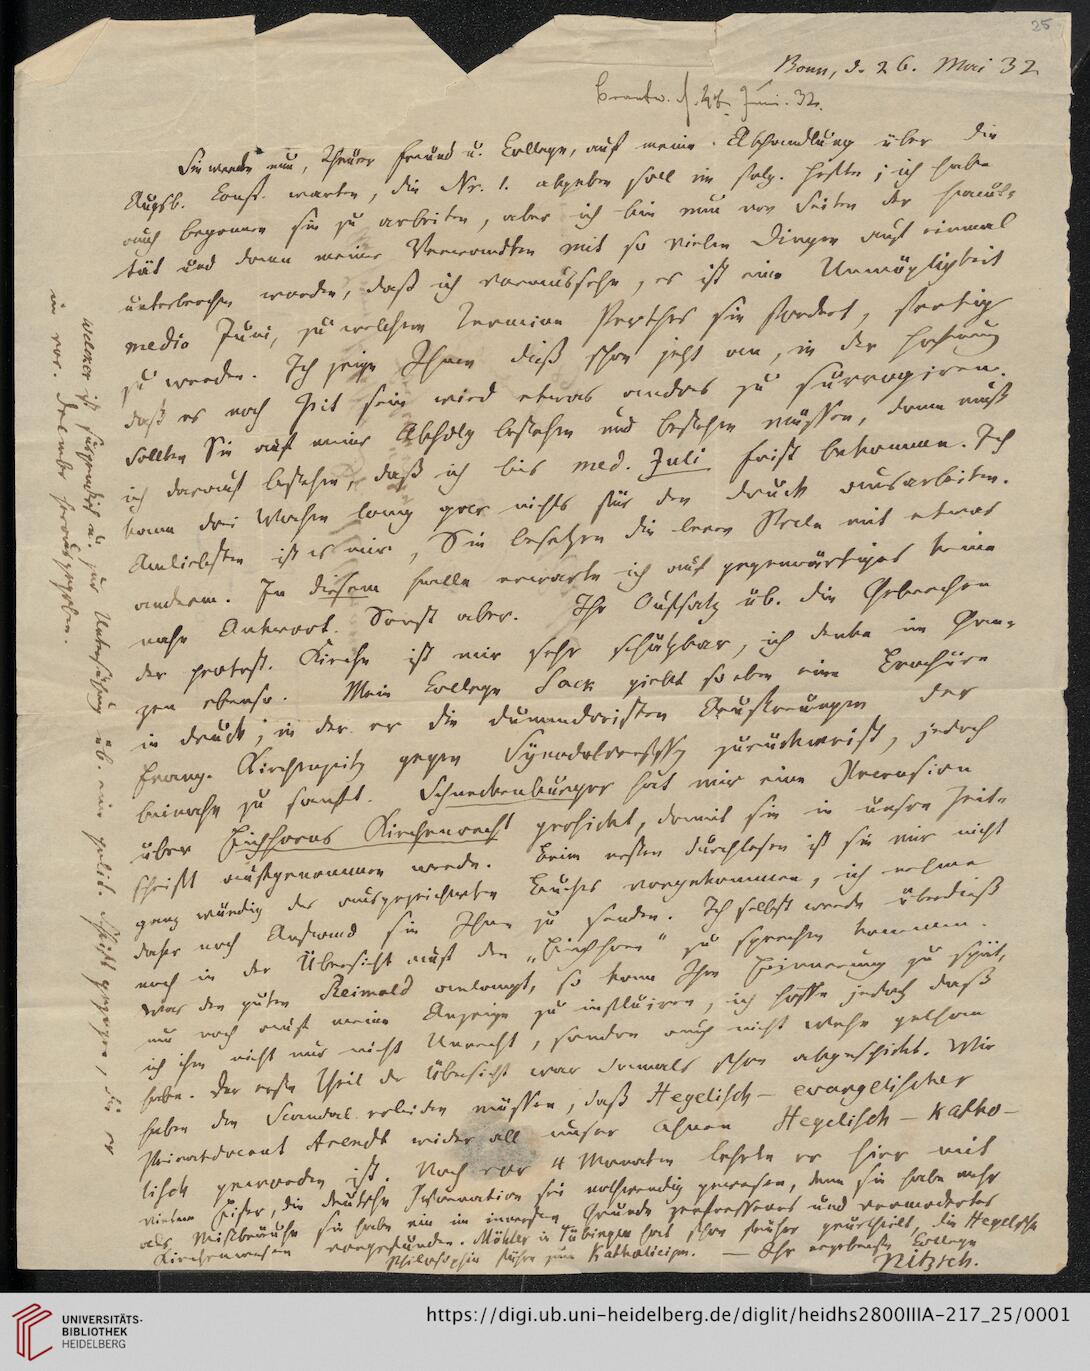 25
Bonn, d. 26. Mai 32
Beantw. d. Juni. 32.
Sie werden nun, theurer Freund u. College, auf meine Abhandlung über die
Augsb. Conf. warten, die Nr. 1. abgeben soll im folg. Hefte; ich habe
auch begonnen sie zu arbeiten, aber ich bin nun von Seiten der Facul-
tät und dann meiner Verwandten mit so vielen Dingen auf einmal
unterbrochen worden, daß ich voraussehe, es ist eine Unmöglichkeit
medio Juni, zu welchem Termine Perthes sie fordert, fertig
zu werden. Ich zeige Ihnen dieß schon jetzt an, in der Hoffnung
daß es noch Zeit sein wird etwas andres zu surrogiren.
Sollten Sie auf meine Abhdlg bestehen und bestehen müssen, dann muß
ich darauf bestehen, daß ich bis med. Juli Frist bekomme. Ich
kann drei Wochen lang gar nichts für den Druck ausarbeiten.
Amliebsten ist es mir, Sie besetzen die leere Stelle mit etwas
anderem. In diesem Falle erwarte ich auf gegenwärtiges keine
nähe Antwort. Sonst aber. Ihr Aufsatz üb. die Gebrechen
der protest. Kirche ist mir sehr schätzbar, ich denke im Gan-
zen ebenso. Mein College Sack giebt so eben eine Brochüre
in Druck, in der er die dummdreisten Äußerungen der
Evang. Kirchenzeitg gegen Synodalverfassg zurückweist, jedoch
beinahe zu sanft. Schneckenburger hat mir eine Recension
über Eichhorns Kirchenrecht geschickt, damit sie in unsre Zeit-
schrift aufgenommen werde. Beim ersten Durchlesen ist sie mir nicht
ganz würdig des ausgezeichneten Buches vorgekommen, ich nehme
daher noch Anstand sie Ihnen zu senden. Ich selbst werde überdieß
noch in der Übersicht auf den „Eichhorn“ zu sprechen kommen.
Was den guten Reimold anlangt, so kam Ihre Erinnerung zu spät,
um noch auf meine Anzeige zu influiren, ich hoffe jedoch daß
ich ihm nicht nur nicht Unrecht, sondern auch nicht wehe gethan
habe. Der erste Theil der Übersicht war damals schon abgeschickt. Wir
haben den Scandal erleiden müssen, daß Hegelisch-evangelischer
Privatdocent Arendt wider all unser Ahnen Hegelisch-katho-
lisch geworden ist. Noch vor 4 Monaten lehrte er hier mit
vielem Eifer, die deutsche Reformation sei nothwendig gewesen, denn sie habe mehr
als Mißbräuche sie habe ein im innersten Grunde zerfressenes und vermodertes
Kirchenwesen vorgefunden. Möhler in Tübingen hat schon früher geurtheilt, die Hegelsche
Philosophie führe zum Katholicism. — Ihr ergebenster College
Nitzsch.
welcher ist fürgendlich u. zur Untersuchung üb. eine polit. Schrift gezogen, die er
in vor. December herausgegeben.
UNIVERSITÄTS-
BIBLIOTHEK
HEIDELBERG
https://digi.ub.uni-heidelberg.de/diglit/heidhs2800IIIA-217_25/0001